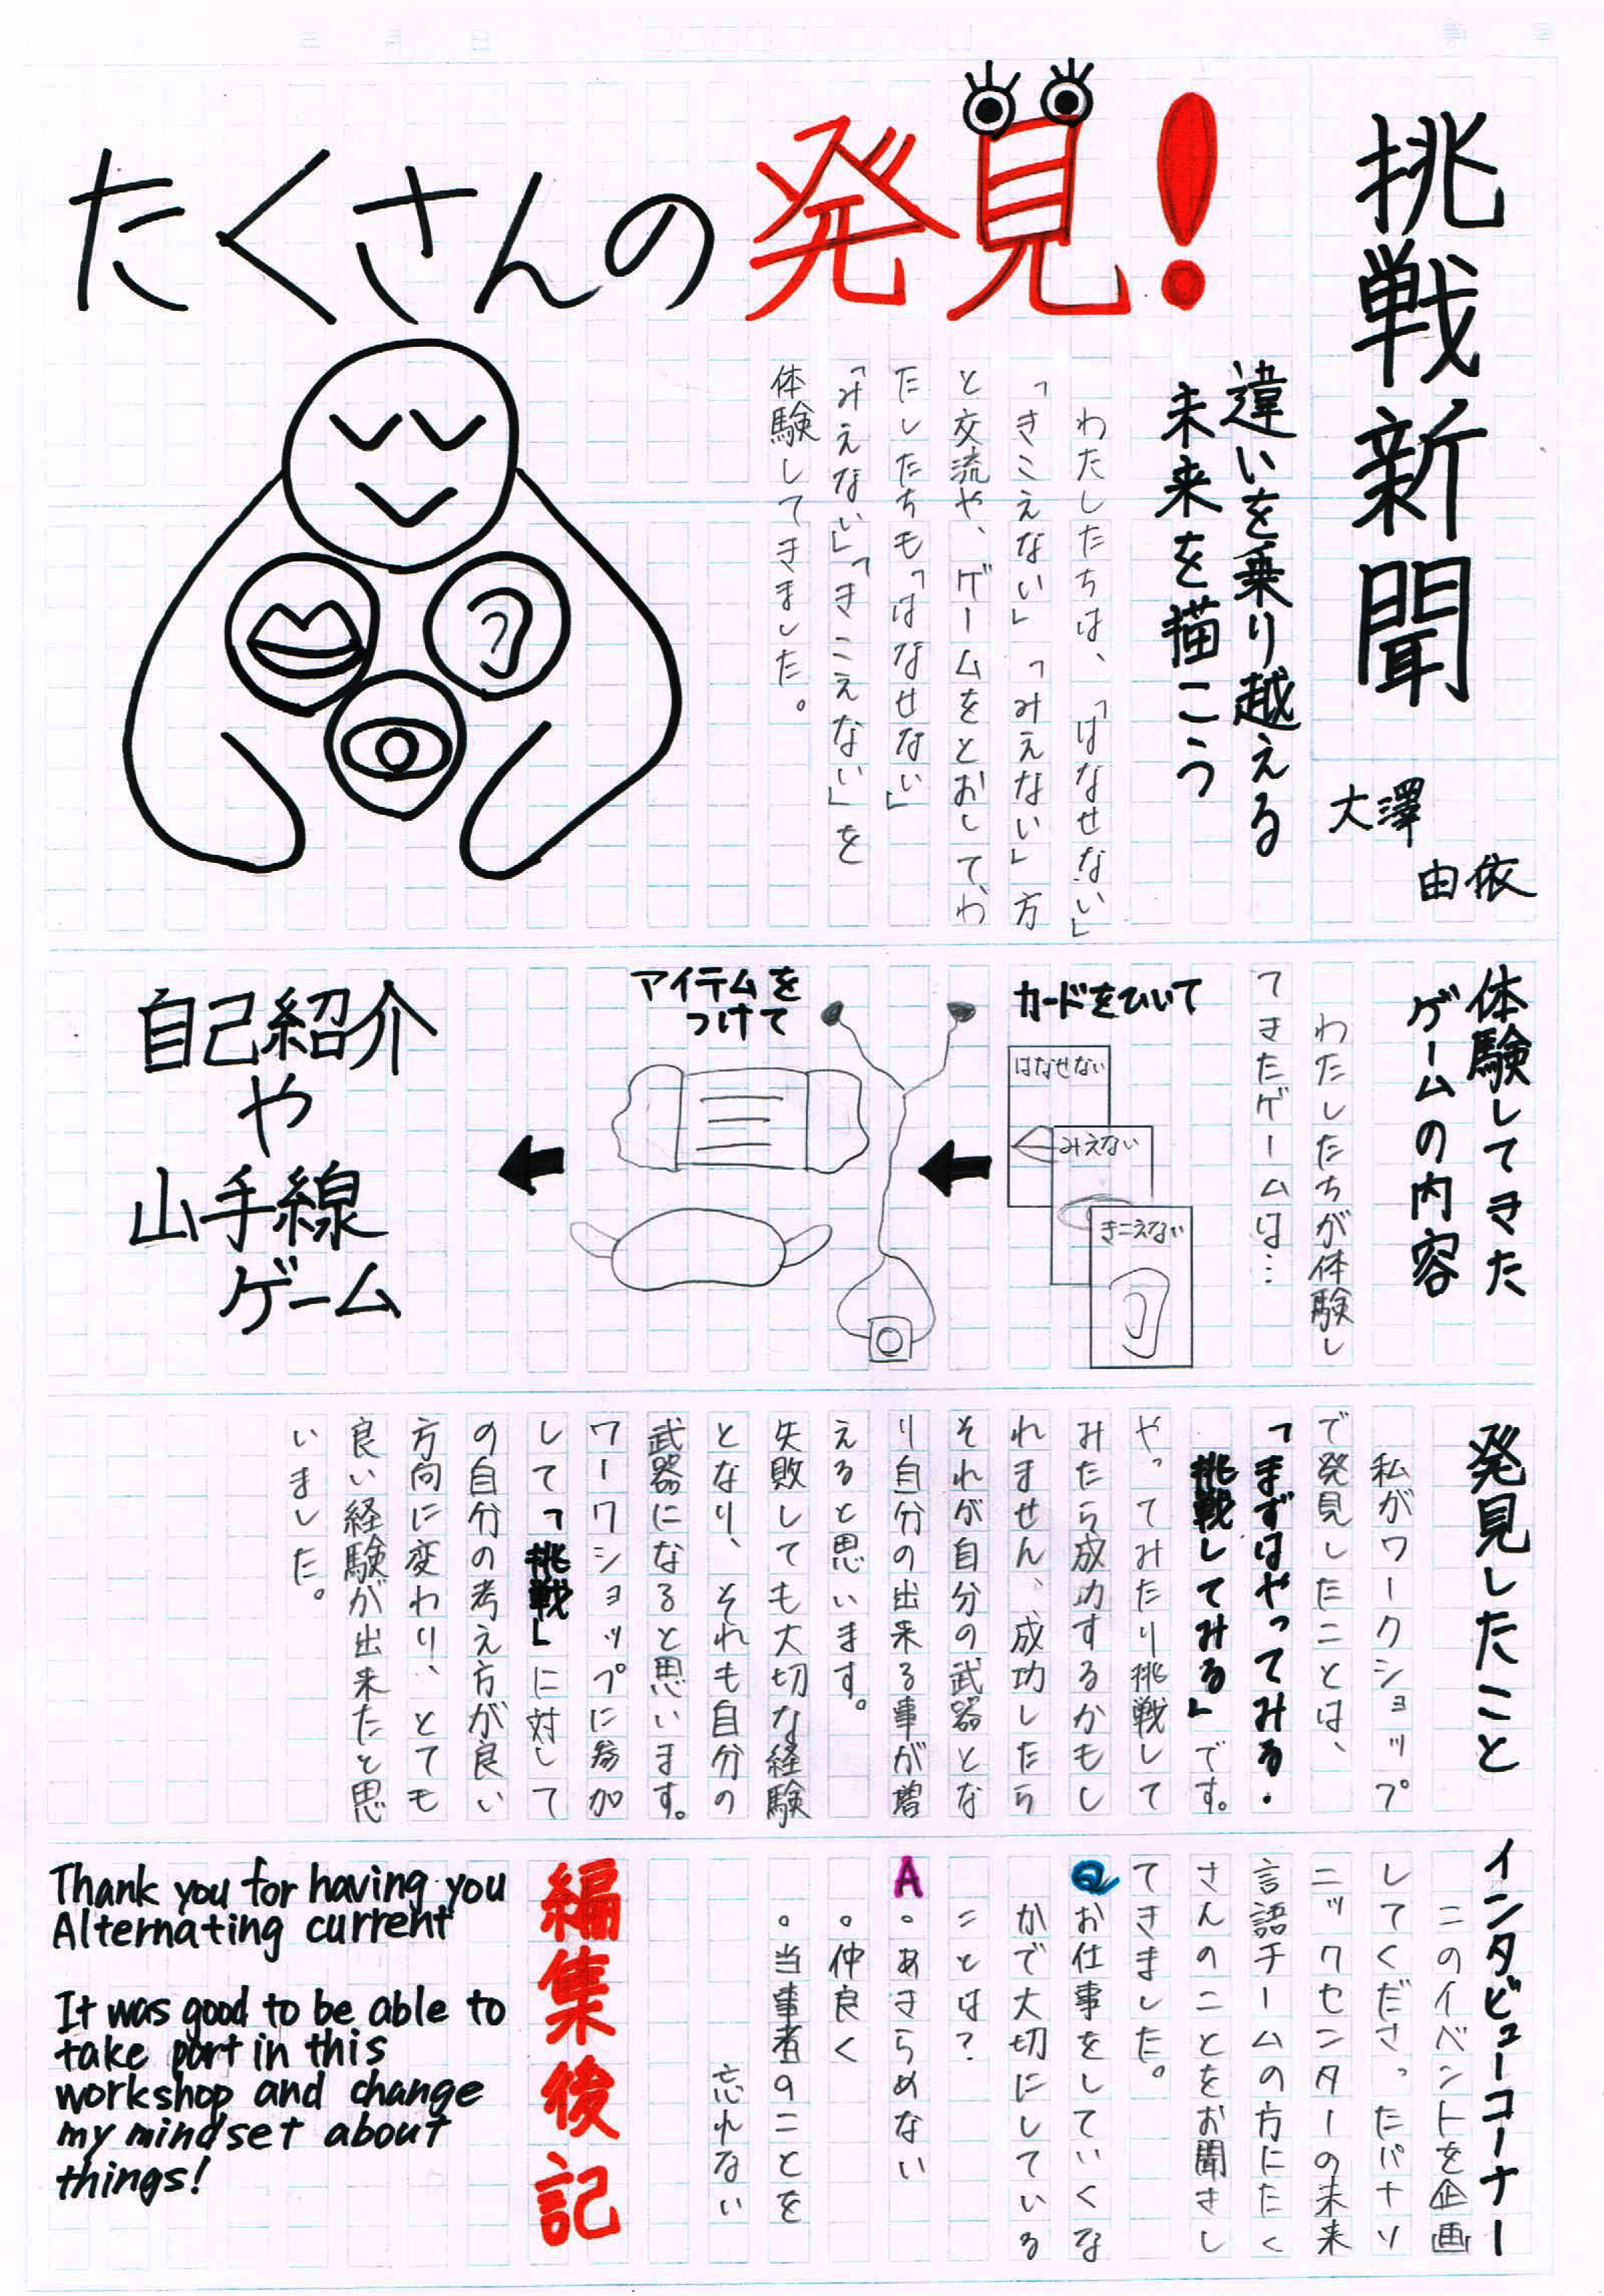 挑戦新聞
大澤
由依
たくさんの発見!
違いを乗り越える
未来を描こう
わたしたちは、「はなせない」
「きこえない」「みえない」方
と交流や、ゲームをとおして、わ
たしたちも「はなせない」
「みえない」「きこえない」を
体験してきました。
体験してきた
ゲームの内容
わたしたちが体験し
てきたゲームは…
カードをひいて
はなせない
みえない
きこえない
アイテムを
つけて
自己紹介
や
山手線
ゲーム
発見したこと
私がワークショップ
で発見したことは、
「まずはやってみる・
挑戦してみる」です。
やってみたり挑戦して
みたら成功するかもし
れません、成功したら
それが自分の武器とな
り自分の出来る事が増
えると思います。
失敗しても大切な経験
となり、それも自分の
武器になると思います。
ワークショップに参加
して「挑戦」に対して
の自分の考え方が良い
方向に変わり、とても
良い経験が出来たと思
いました。
インタビューコーナー
このイベントを企画
してくださったパナソ
ニックセンターの未来
言語チームの方にたく
さんのことをお聞きし
てきました。
Qお仕事をしていくな
かで大切にしている
ことは?
A。あきらめない
。仲良く
。当事者のことを
忘れない
編集後記
Thank you for having you
Alternating current
It was good to be able to
take part in this
workshop and change
my mindset about
things!